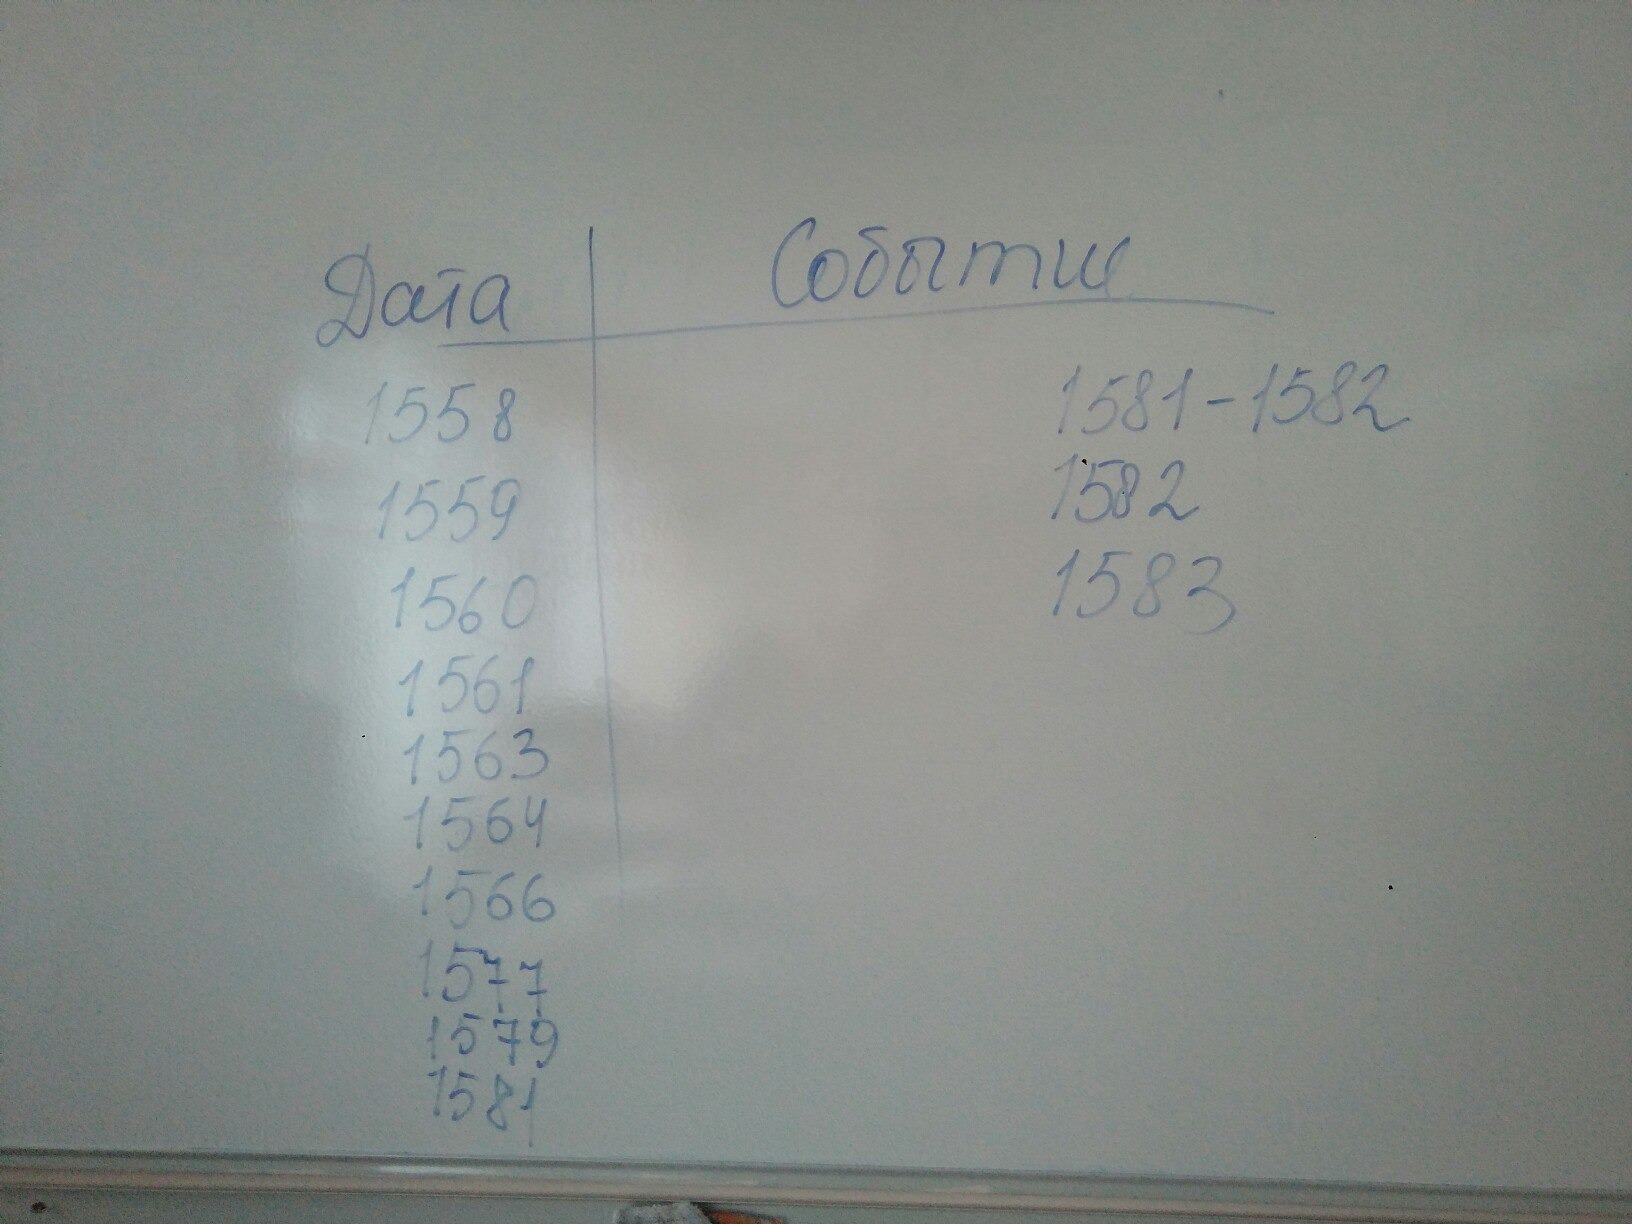 Дата Событие
1558
1559
1560
1561
1563
1564
1566
1577
1579
1581
1581-1582
1582
1583